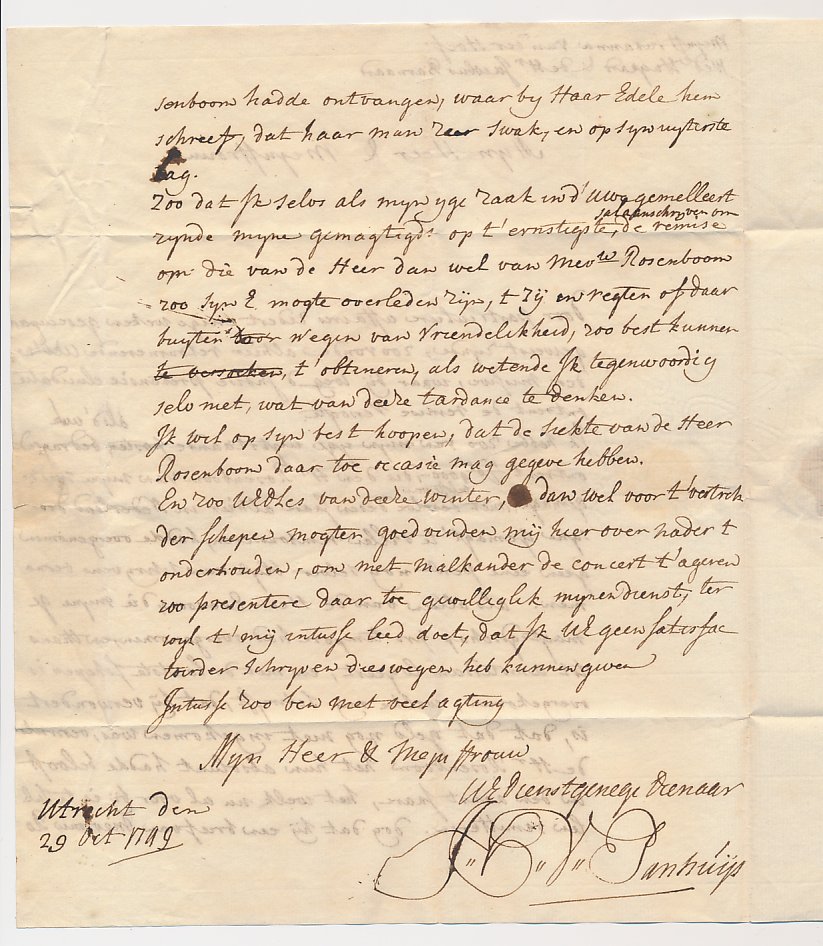 senboom hadde ontvangen, waar by Haar Edele hem
schreef, dat haar man zeer swak, en op syn uyterste
lag.
Zoo dat Ik selvs als myn yge zaak in d'
zynde myne gemagtigd: op t' ernstigste, sal aanschryven om de remise
om die van de Heer dan wel van Mevw Rosenboom
zoo syn E mogte overleden zyn, t Zij en regten of daar
buyten door wegen van Vriendelikheid, zoo best kunnen
te versoeken, t' obtineren, als wetende Ik tegenwoordig
selv met, wat van deeze tardance te denken.
Ik wil op syn best hoopen, dat de siekte van de Heer
Rosenboom daar toe occasie mag gegeve hebben.
En zoo UEdLes van deeze winter, dan wel voor t' vertrek
der schepen mogten goedvinden mij hier over nader t
onderhouden, om met malkander de concert t' ageren
zoo presentere daar toe gewilleglik mynen dienst, ter
wyl t' mij intusse leed doet, dat Ik UE geen satisfac
toirder schryven dies wegen heb kunnen geven
Intusse zoo ben met veel agting
Myn Heer & Mejuffrouw
UE Dienstgenege Dienaar
Utrecht den
29 Oct 1749
Panhuijs